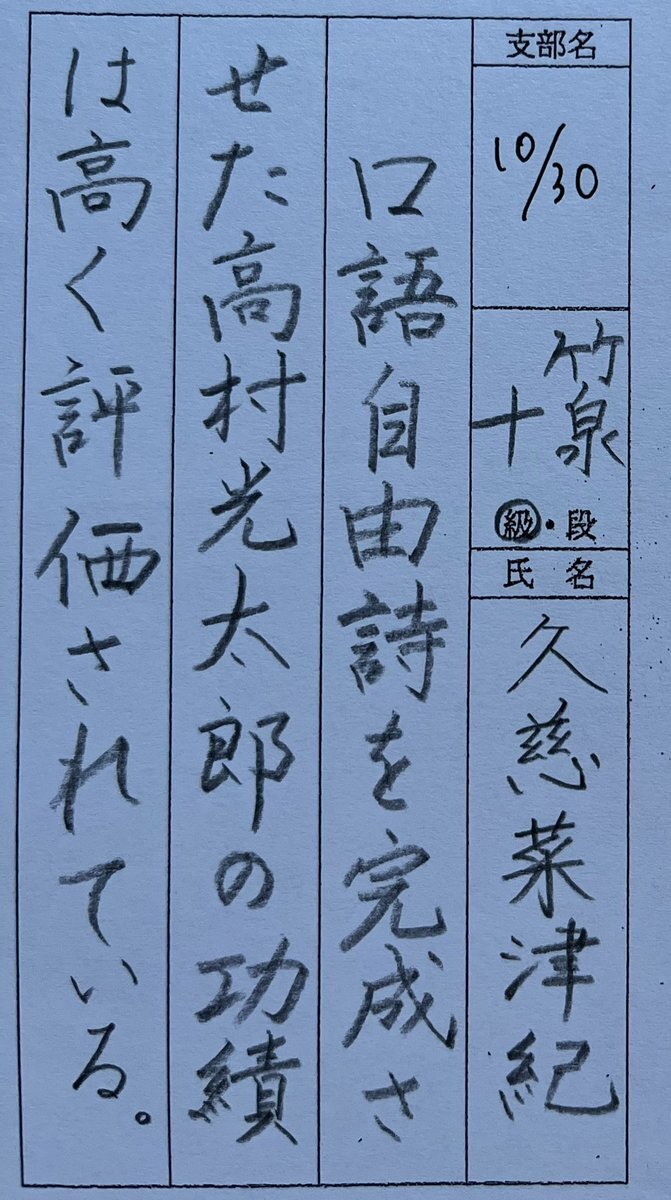 支部名
10/30
竹泉
十
級・段
氏名
久慈菜津紀
口語自由詩を完成さ
せた高村光太郎の功績
は高く評価されている。